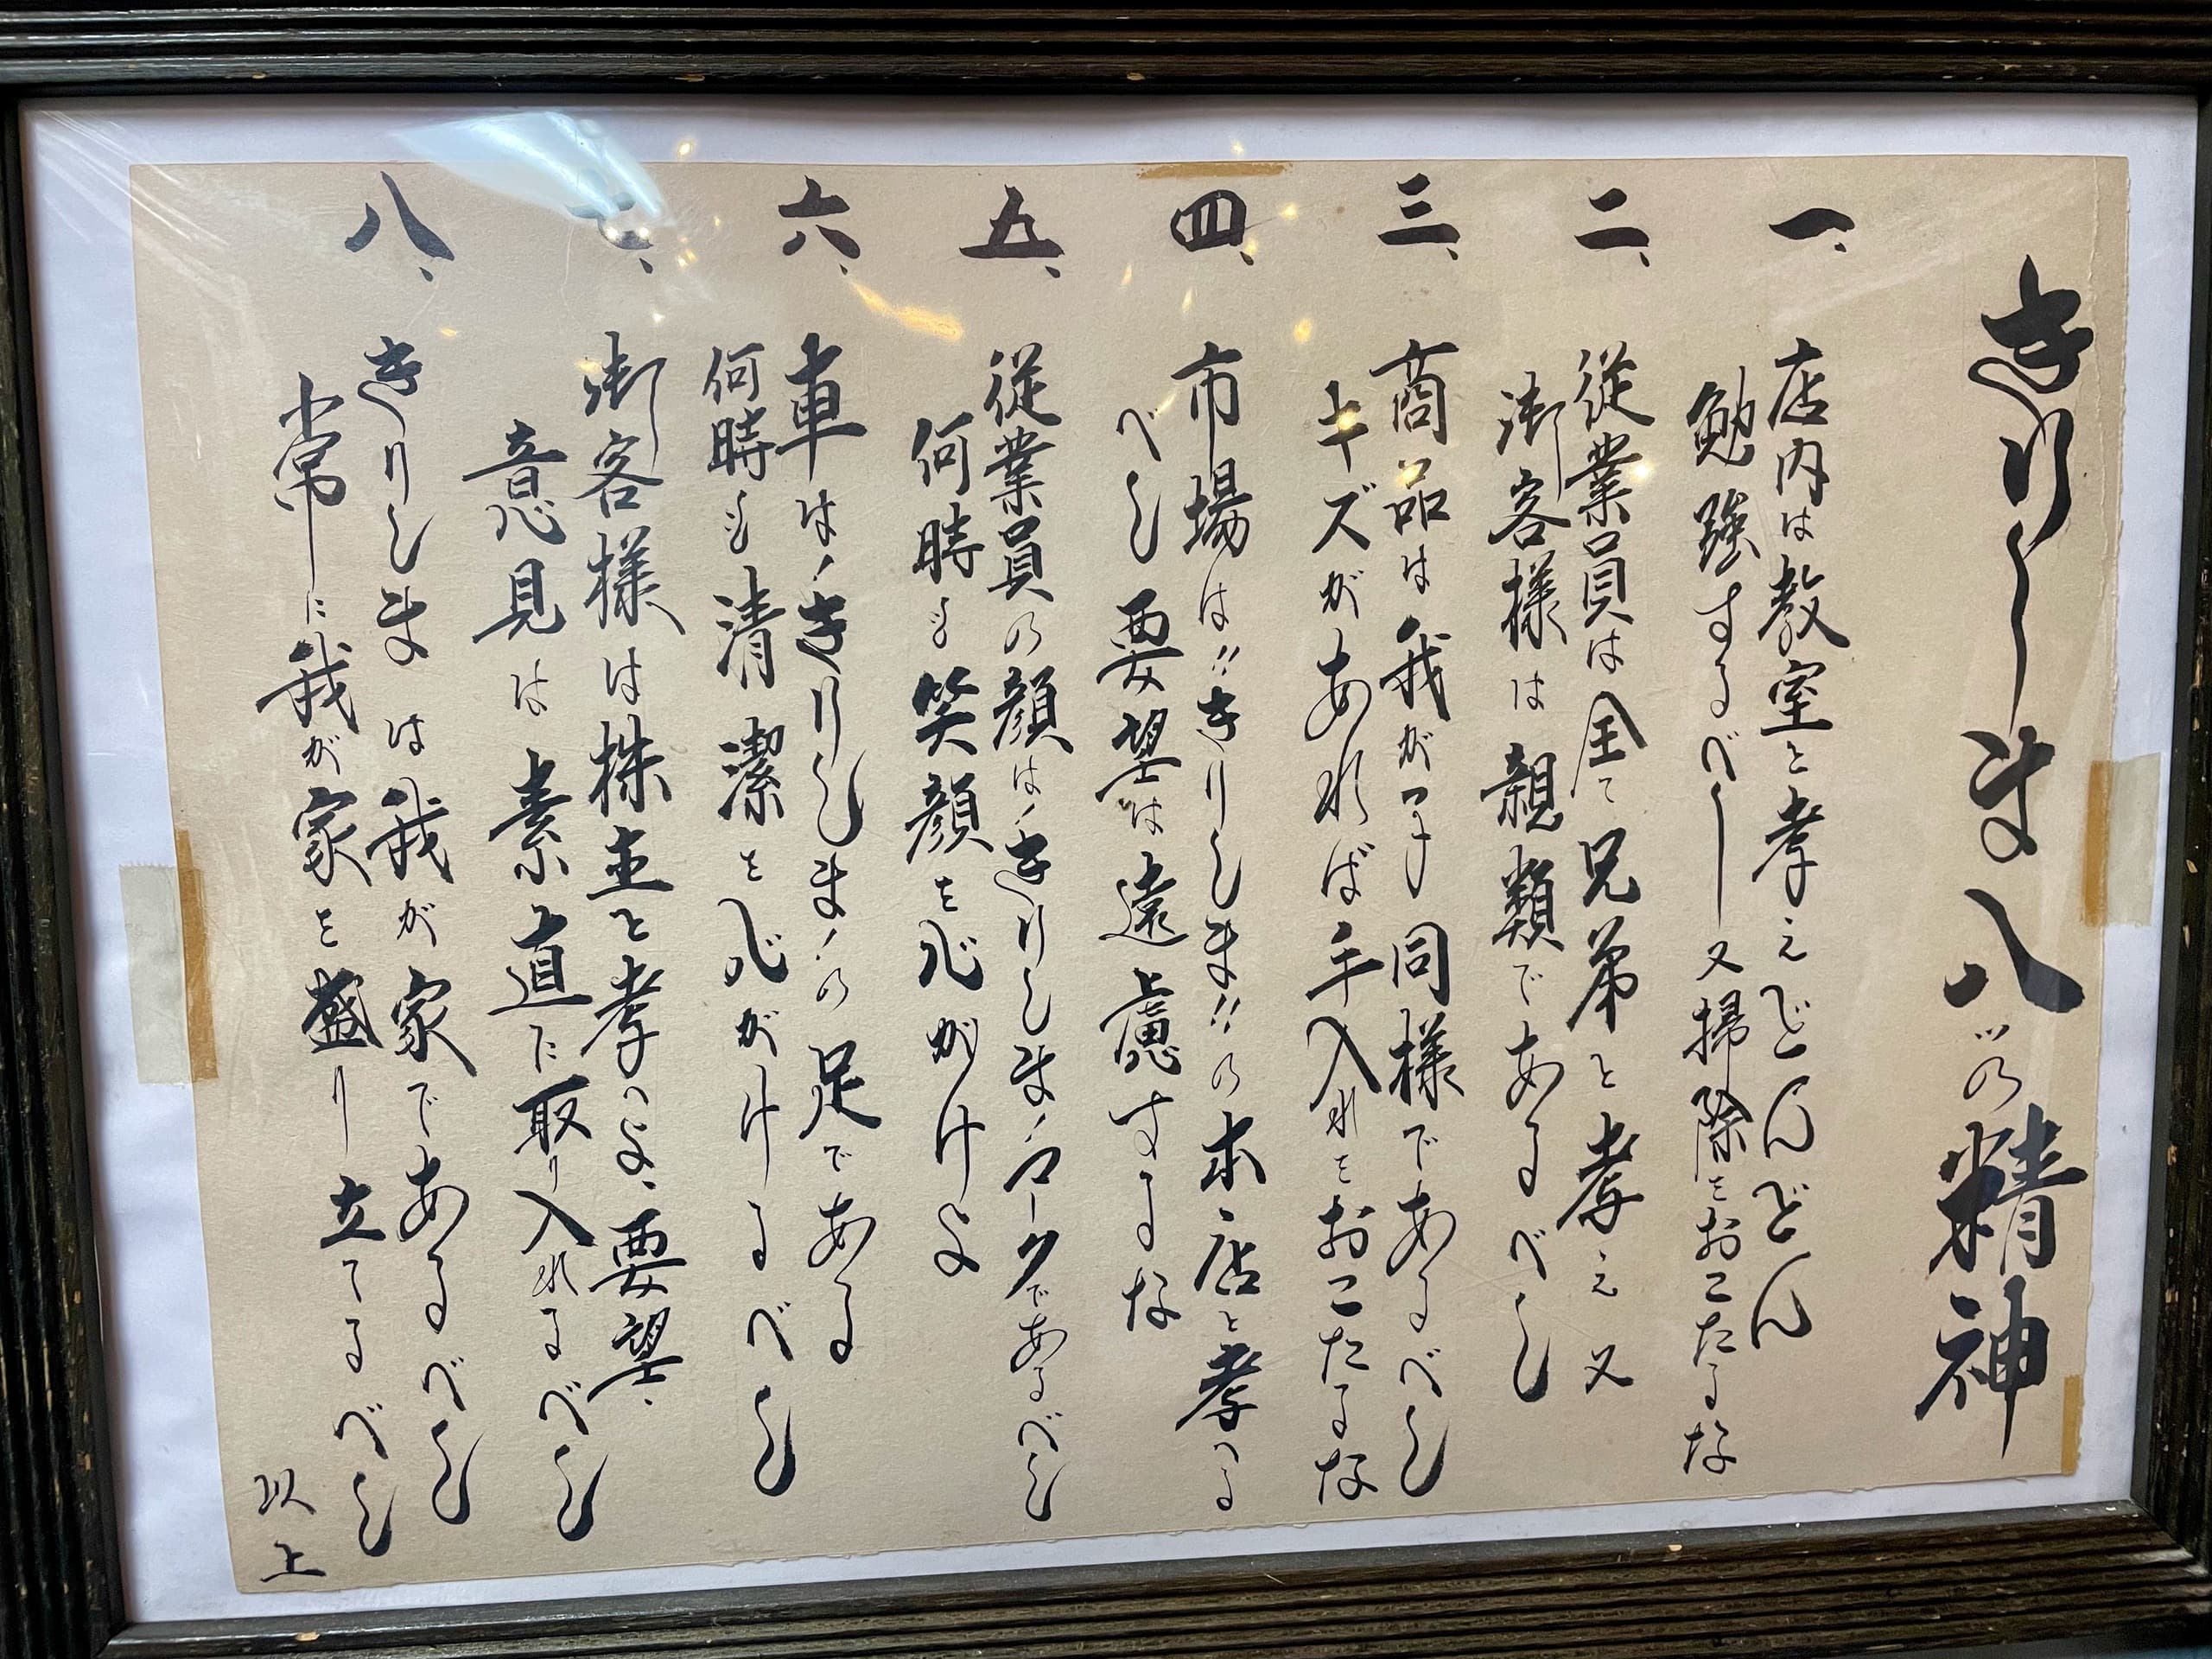 きりしま八ヶの精神
一、店内は教室と考えどんどん
勉強するべし又掃除をおこたるな
二、従業員は全て兄弟と考え又
御客様は親類であるべし
三、商品は我が子同様であるべし
キズがあれば手入れをおこたるな
四、市場は〃きりしま〃の本店と考へる
べし要望は遠慮するな
五、従業員の顔は、きりしま、ロークであるべし
何時も笑顔を心がけよ
六、車は、きりしま、の足である
何時も清潔を心がけるべし
七、御客様は株主と考へよ、要望、
意見は素直に取り入れるべし
八、きりしまは我が家であるべし
常に我が家を盛り立てるべし
以上